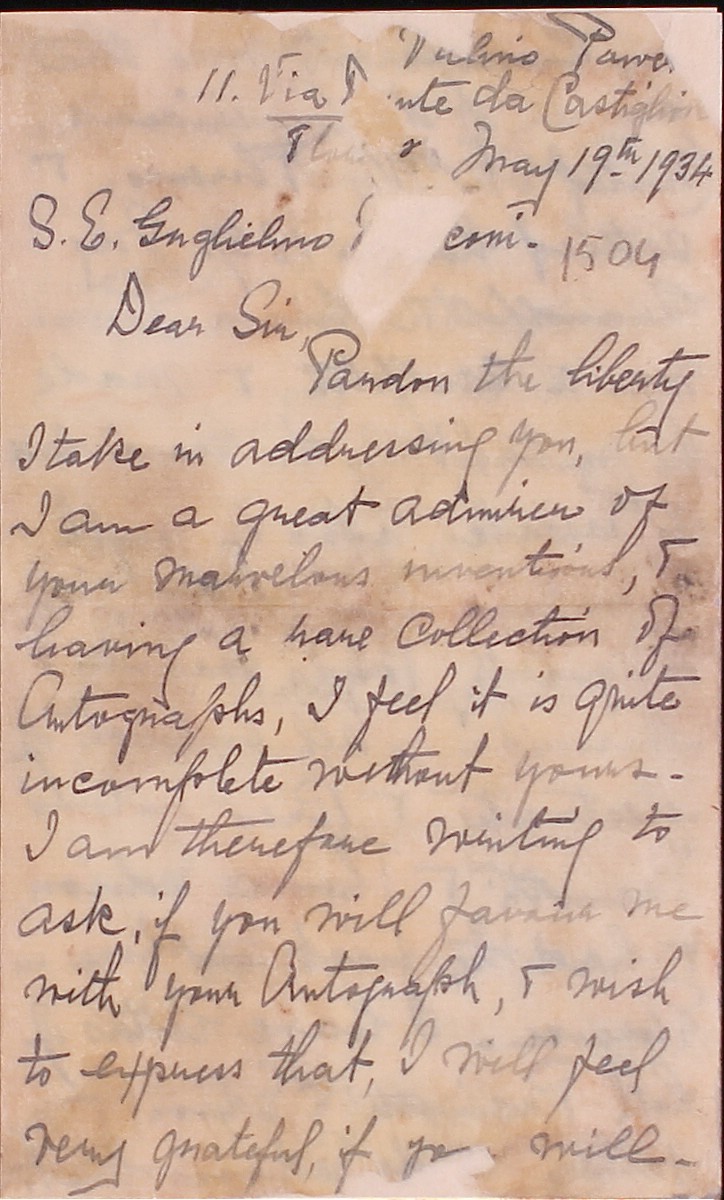 11. Via da Castiglion
May 19th 1934
S. E. Guglielmo coni.
1504
Dear Sir,
Pardon the liberty
I take in addressing you, but
I am a great admirer of
your marvelous inventions, &
having a rare Collection of
Autographs, I feel it is quite
incomplete without yours.
I am therefore writing to
ask, if you will favour me
with your Autograph, & wish
to express that, I will feel
very grateful, if yo will -